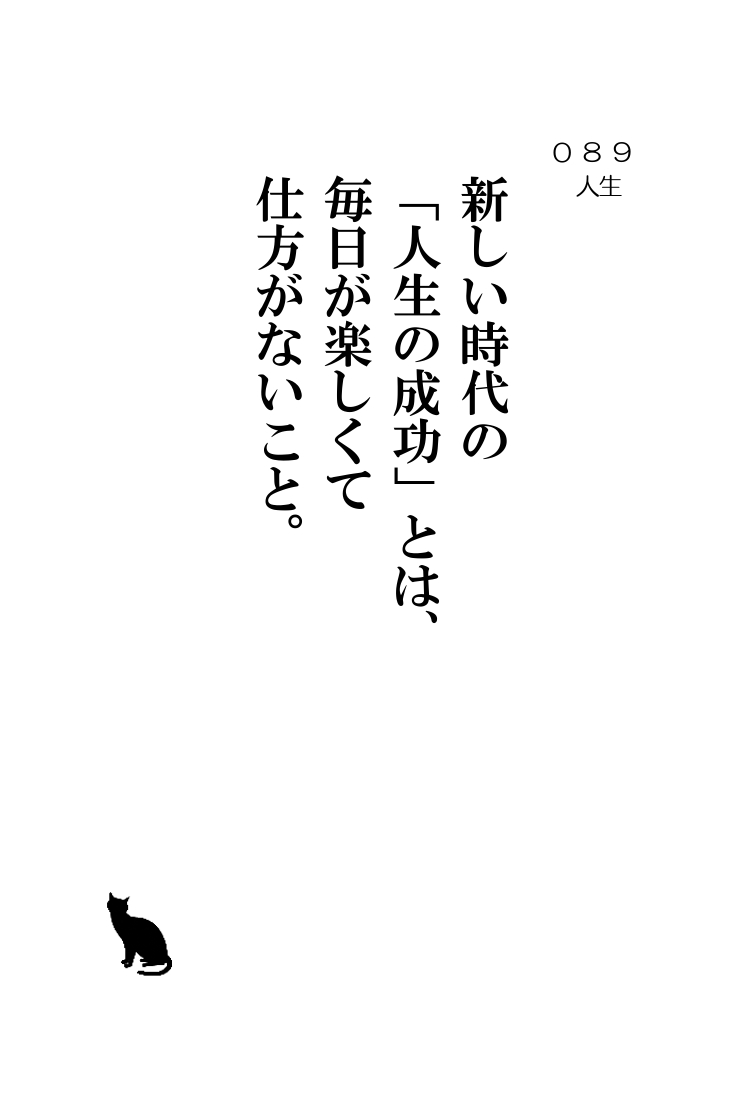 ０８９
人生
新しい時代の
「人生の成功」とは、
毎日が楽しくて
仕方がないこと。